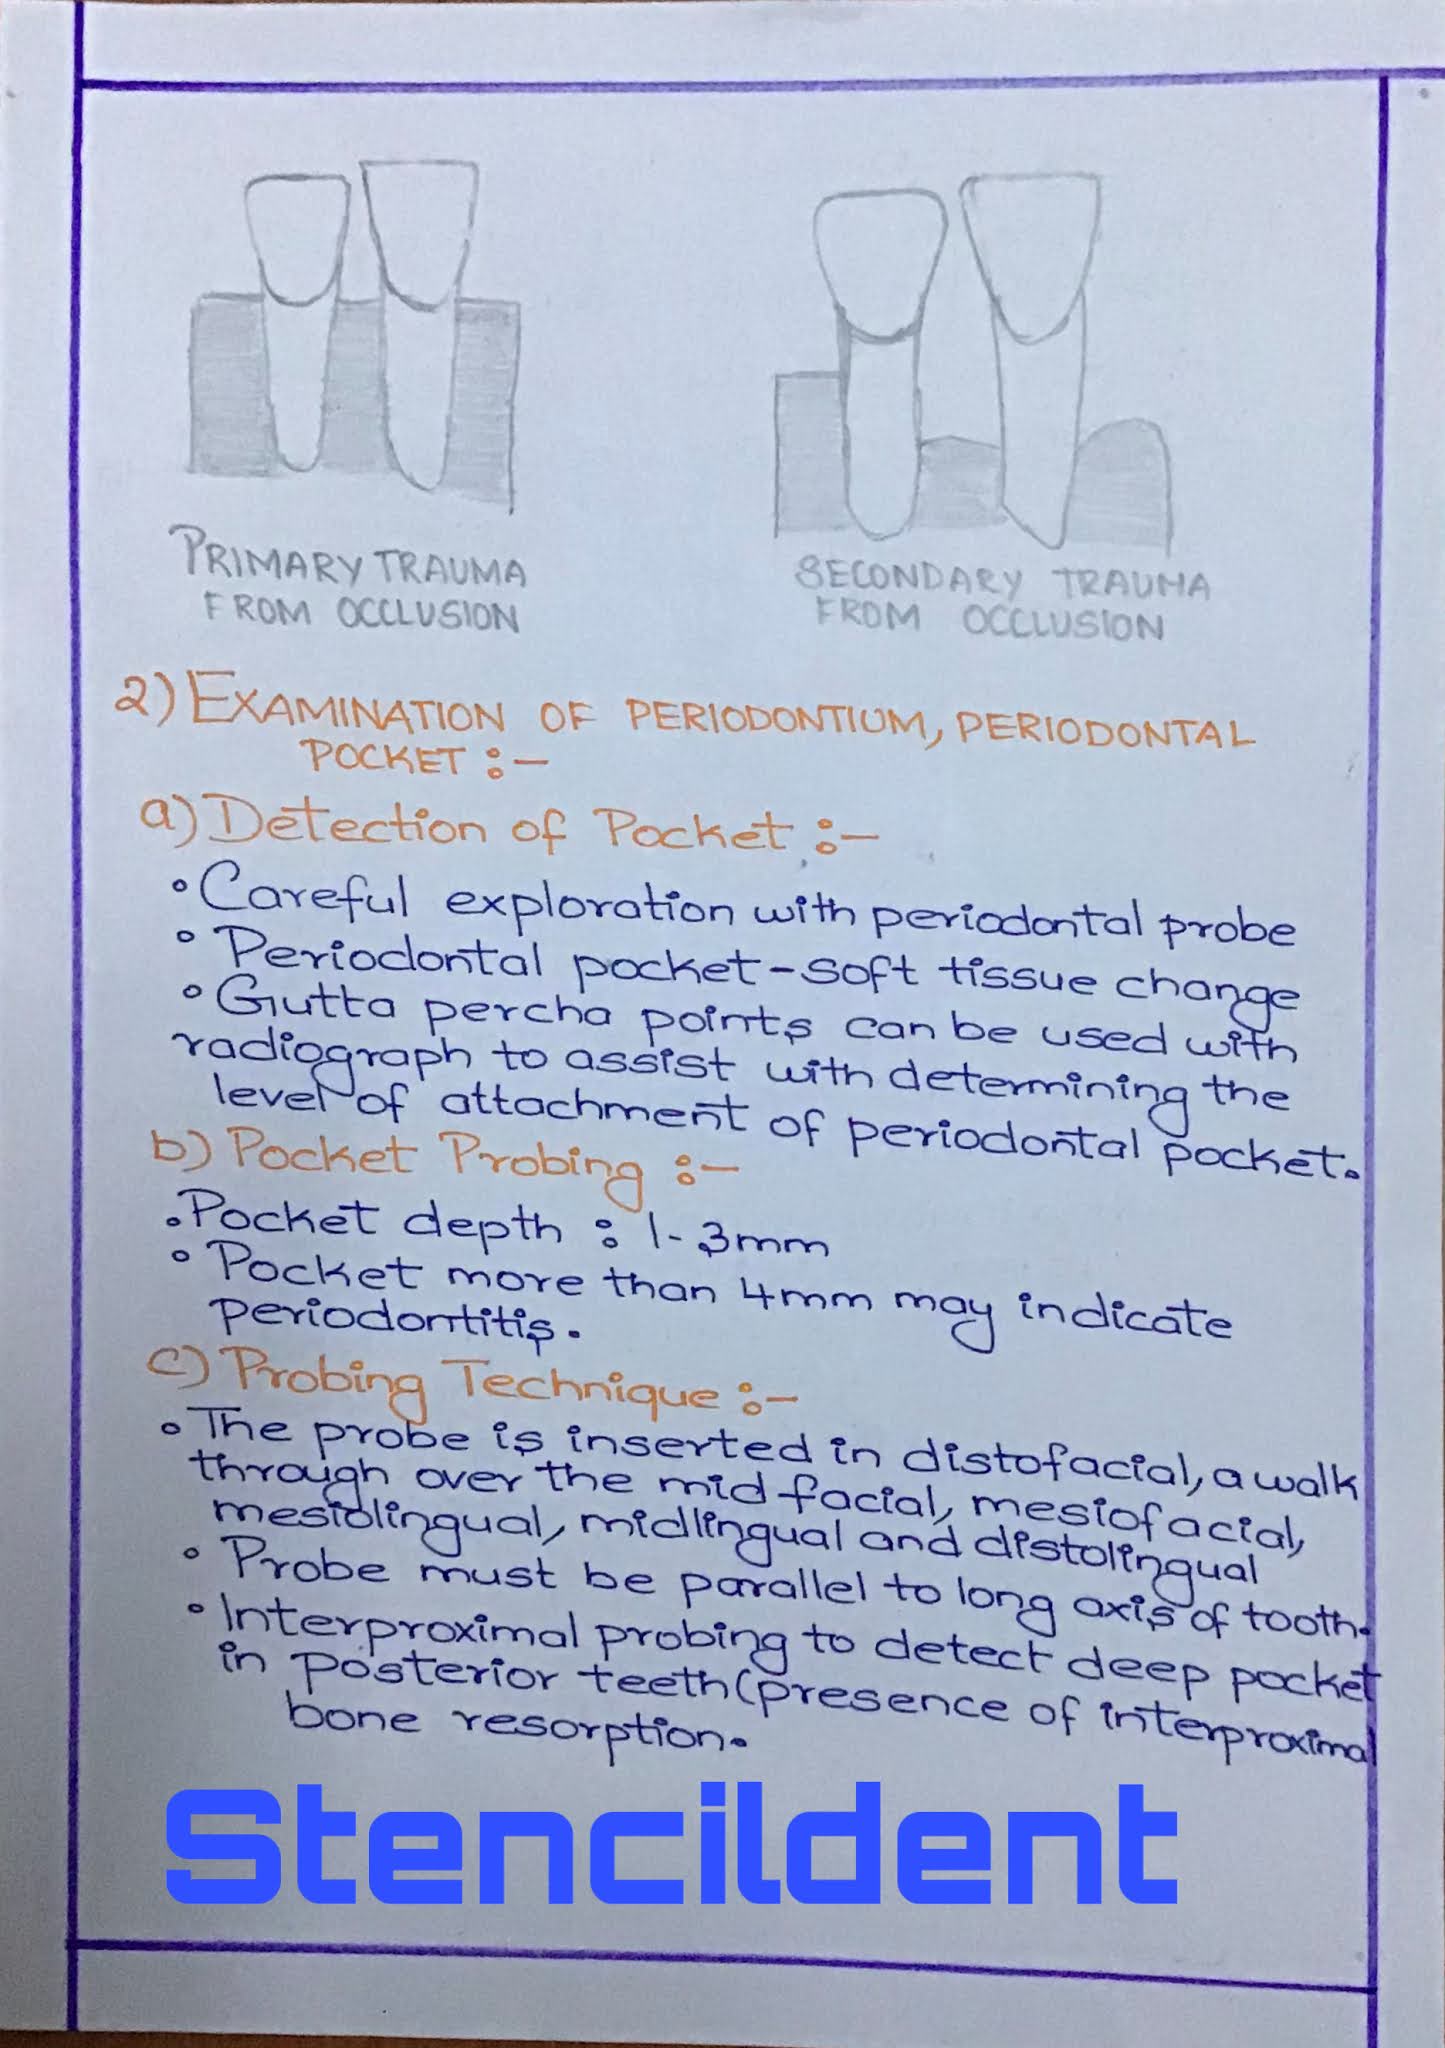 PRIMARY TRAUMA
FROM OCCLUSION
SECONDARY TRAUMA
FROM OCCLUSION
2) EXAMINATION OF PERIODONTIUM, PERIODONTAL
POCKET :-
a) Detection of Pocket :-
• Careful exploration with periodontal probe
• Periodontal pocket - soft tissue change
• Gutta percha points can be used with
radiograph to assist with determining the
level of attachment of periodontal pocket.
b) Pocket Probing :-
• Pocket depth : 1-3mm
• Pocket more than 4mm may indicate
periodontitis.
c) Probing Technique :-
• The probe is inserted in distofacial, a walk
through over the mid facial, mesiofacial,
mesiolingual, midlingual and distolingual
• Probe must be parallel to long axis of tooth.
• Interproximal probing to detect deep pocket
in posterior teeth (presence of interproximal
bone resorption.
Stencildent